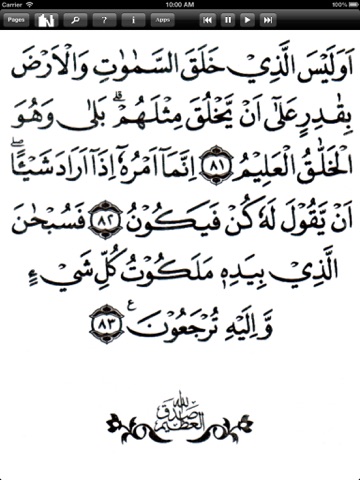 Carrier 10:00 AM 100%
Pages ? i Apps
اَوَلَيْسَ الَّذِيْ خَلَقَ السَّمٰوٰتِ وَالْاَرْضَ
بِقٰدِرٍ عَلٰٓى اَنْ يَّخْلُقَ مِثْلَهُمْ ۗ بَلٰى وَهُوَ
الْخَلّٰقُ الْعَلِيْمُ ﴿٨١﴾ اِنَّمَآ اَمْرُهٗٓ اِذَآ اَرَادَ شَيْئًا ۖ
اَنْ يَّقُوْلَ لَهٗ كُنْ فَيَكُوْنُ ﴿٨٢﴾ فَسُبْحٰنَ
الَّذِيْ بِيَدِهٖ مَلَكُوْتُ كُلِّ شَيْءٍ
وَّاِلَيْهِ تُرْجَعُوْنَ ࣖ ﴿٨٣﴾
صدق الله العظيم